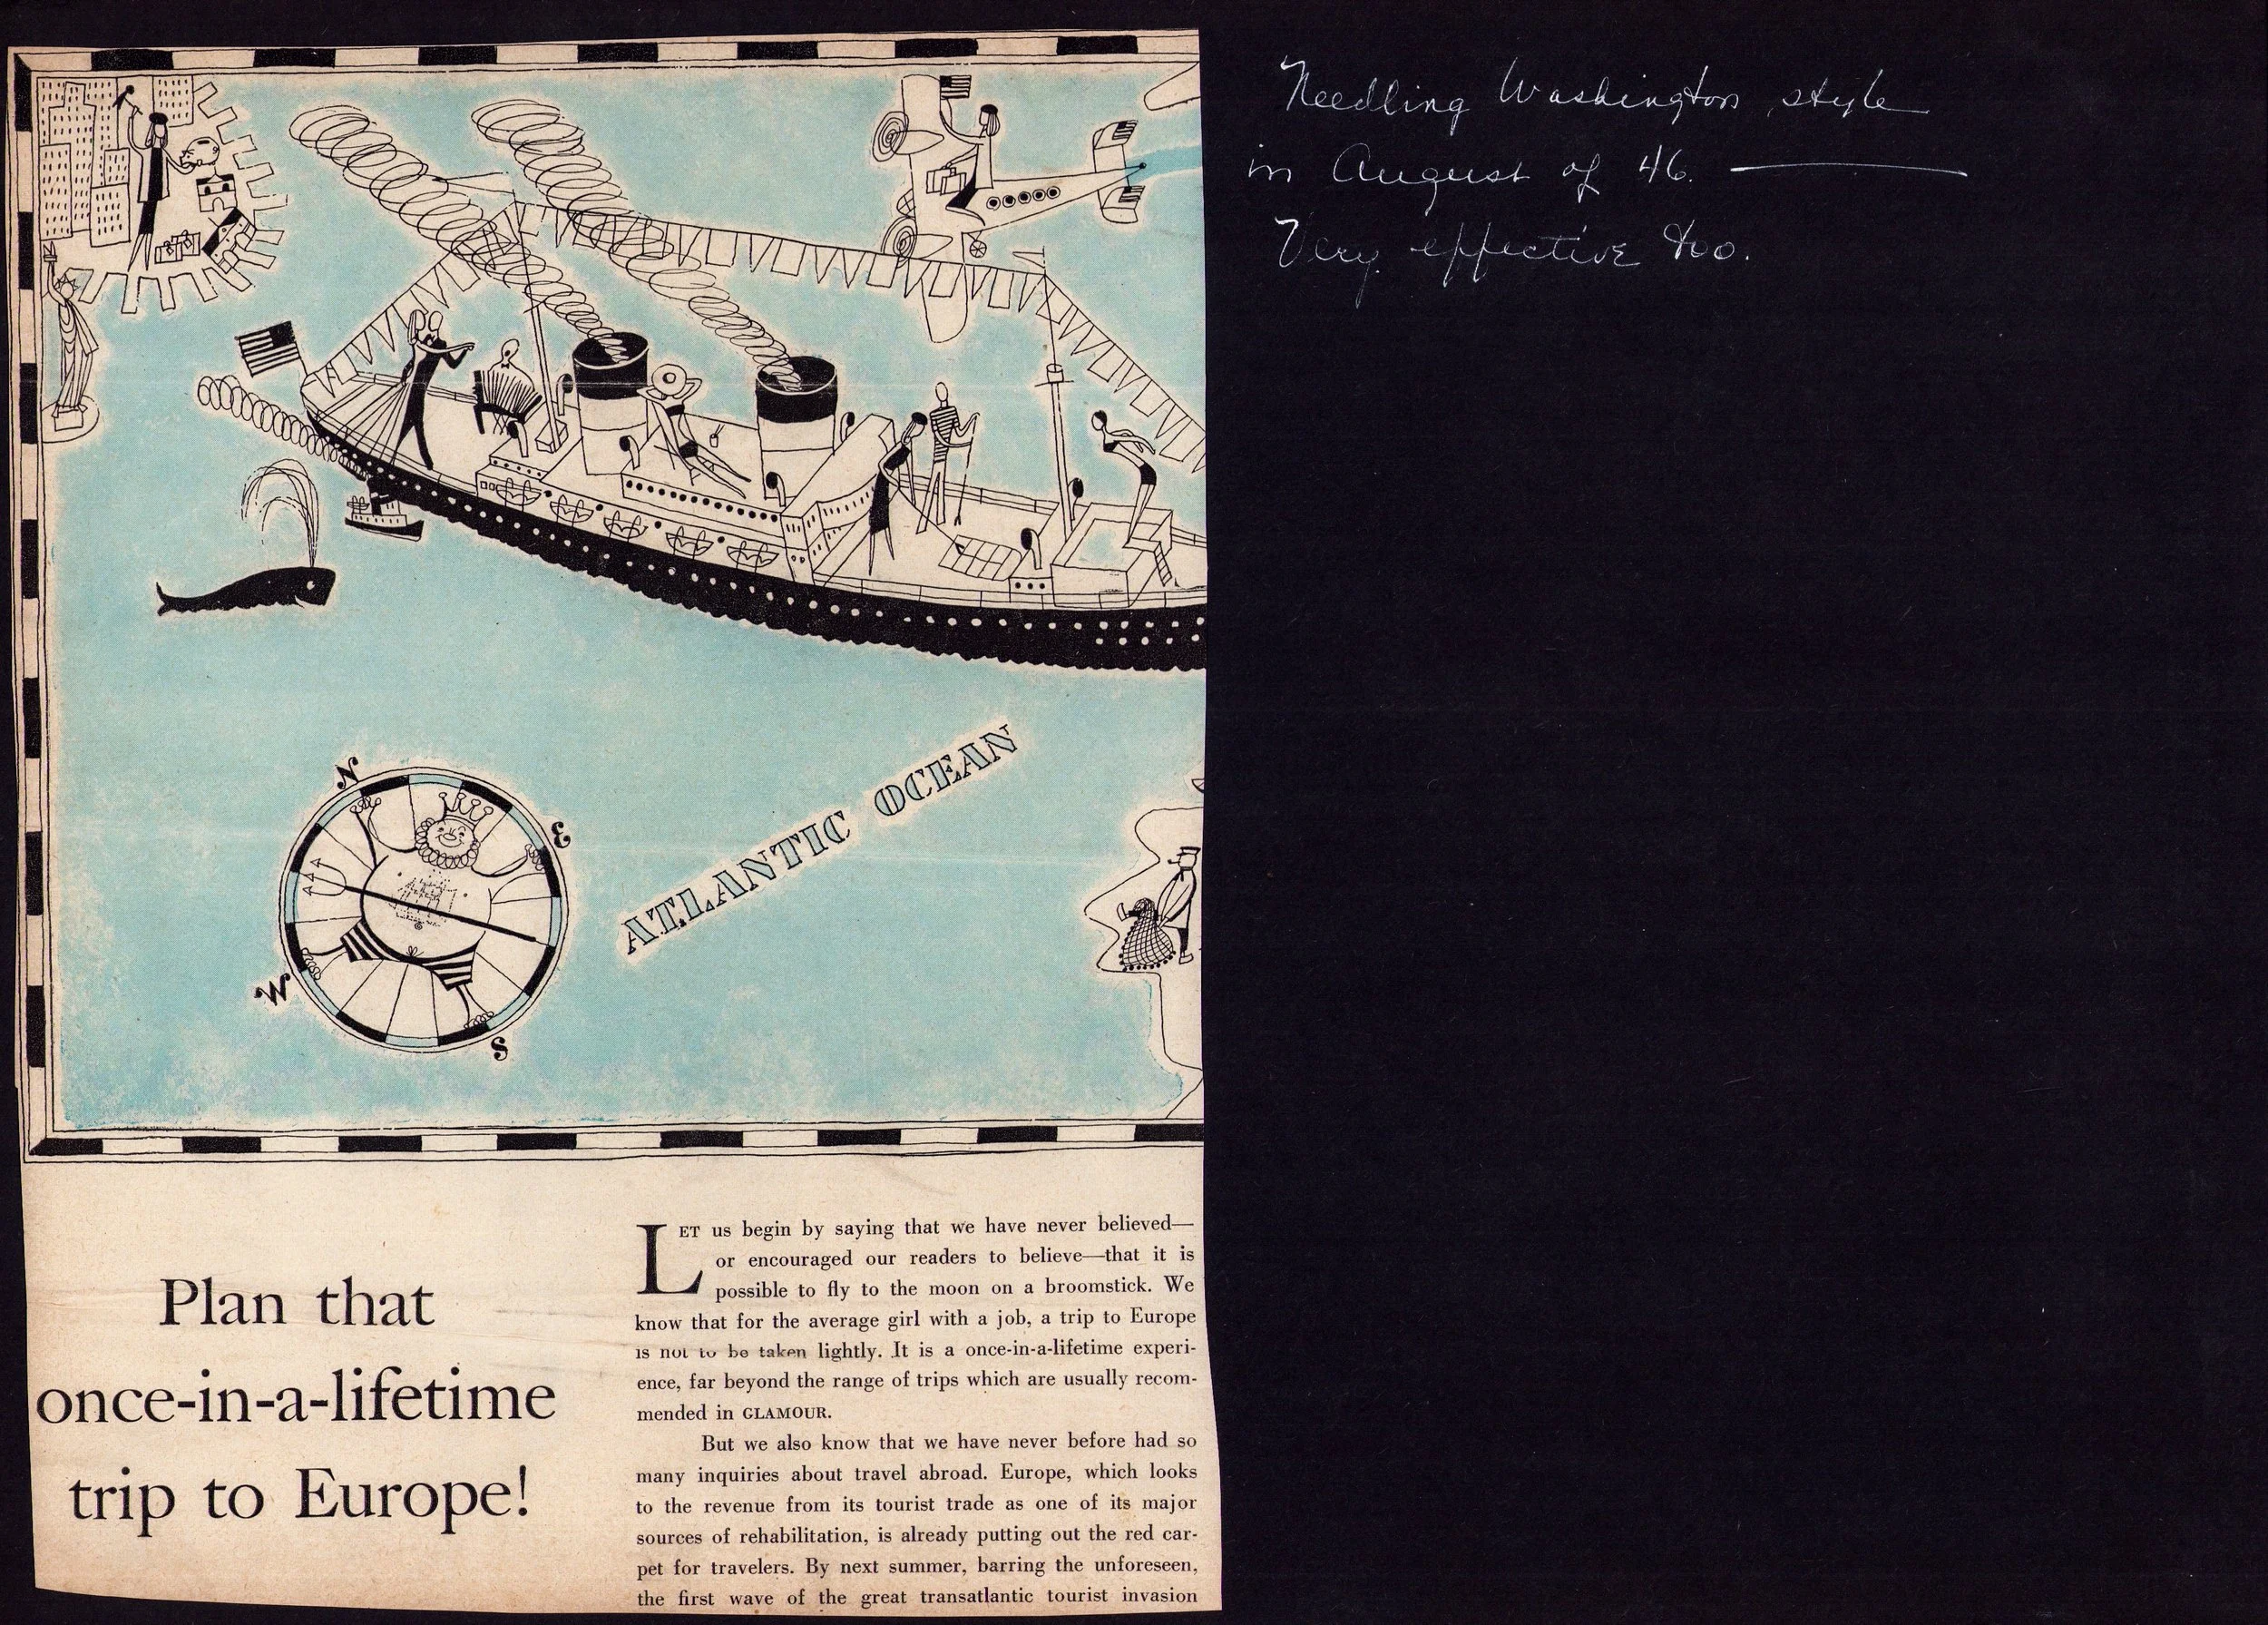 Needling Washington style
in August of 46. ———
Very effective too.
N
E
W
S
ATLANTIC OCEAN
Plan that
once-in-a-lifetime
trip to Europe!
LET us begin by saying that we have never believed—
or encouraged our readers to believe—that it is
possible to fly to the moon on a broomstick. We
know that for the average girl with a job, a trip to Europe
is not to be taken lightly. It is a once-in-a-lifetime experi-
ence, far beyond the range of trips which are usually recom-
mended in GLAMOUR.
But we also know that we have never before had so
many inquiries about travel abroad. Europe, which looks
to the revenue from its tourist trade as one of its major
sources of rehabilitation, is already putting out the red car-
pet for travelers. By next summer, barring the unforeseen,
the first wave of the great transatlantic tourist invasion